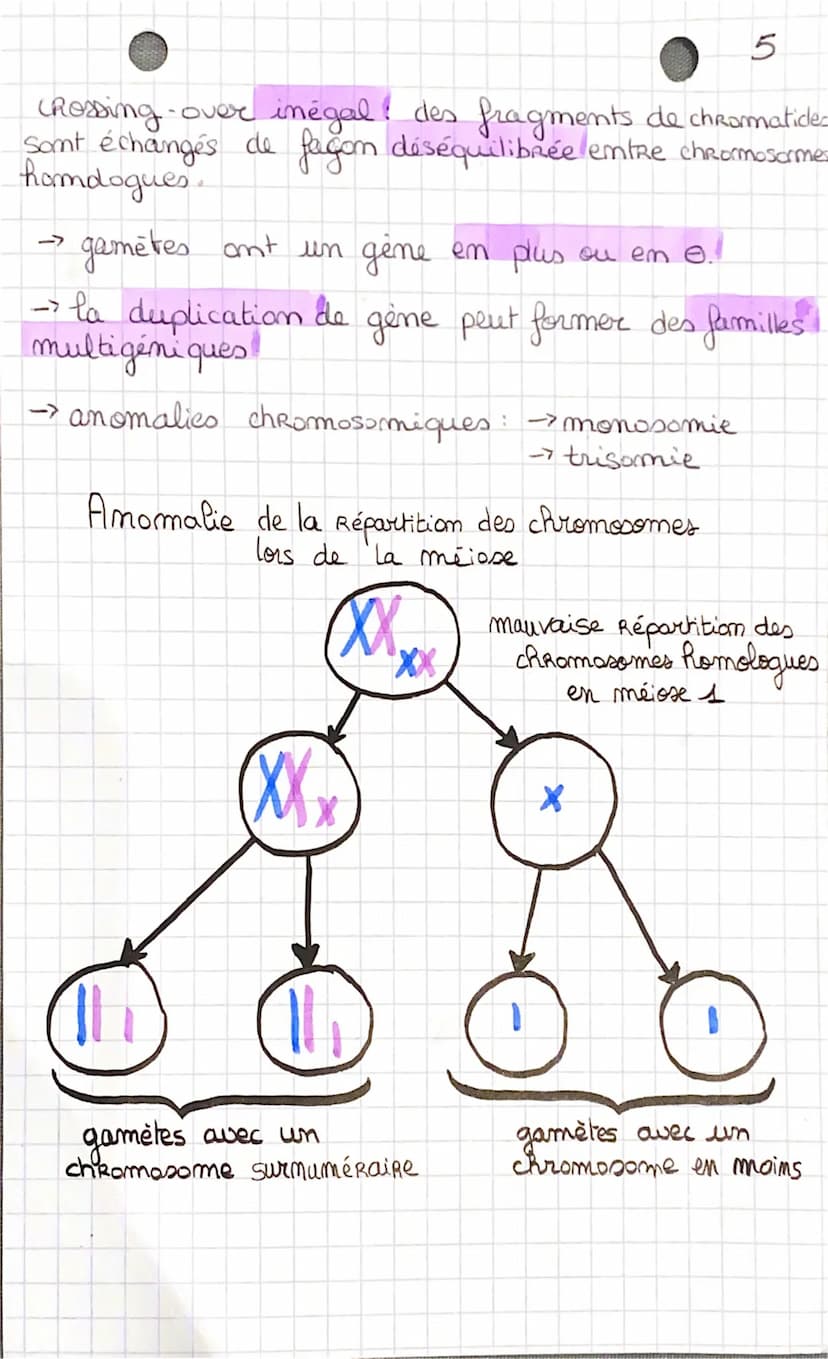 5
crossing-over inégal : des fragments de chromatides
sont échangés de façon déséquilibrée entre chromosomes
homologues.
→ gamètes ont un gène en plus ou en ⊖.
→ la duplication de gène peut former des familles
multigéniques
→ anomalies chromosomiques : → monosomie
→ trisomie
Anomalie de la répartition des chromosomes
lors de la méiose
mauvaise répartition des
chromosomes homologues
en méiose 1
gamètes avec un
chromosome surnuméraire
gamètes avec un
chromosome en moins